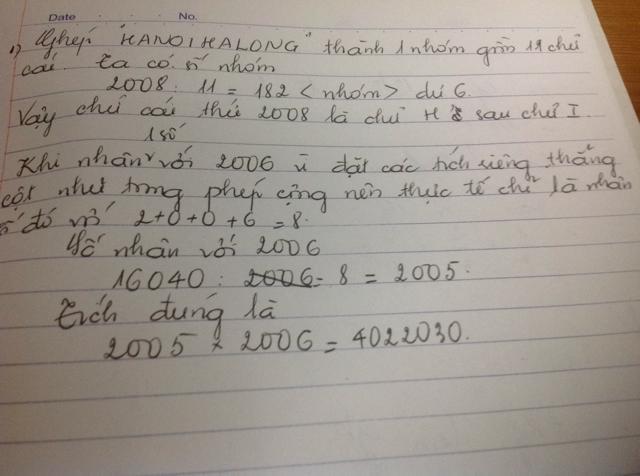 Date No.
1) Ghép "HANOIHALONG" thành 1 nhóm gồm 11 chữ
cái ta có số nhóm
2008 : 11 = 182 < nhóm > dư 6.
Vậy chữ cái thứ 2008 là chữ H sau chữ I.
1 số
Khi nhân với 2006 vì đặt các tích riêng thẳng
cột như trong phép cộng nên thực tế chỉ là nhân
số đó với 2+0+0+6 = 8.
Số nhân với 2006
16040 : 8 = 2005.
Tích đúng là
2005 x 2006 = 4022030.